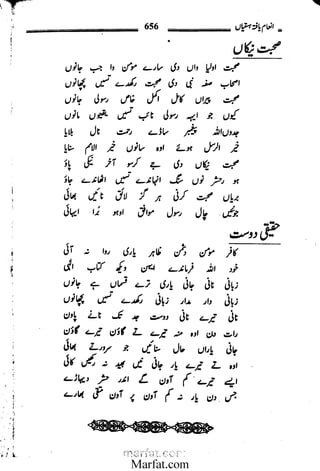 انعام یافتہ ہستیاں 656
صحبت نیکاں
محبت اولیا واں دی سارے مومن دا جب جانوں
اصحاب صفہ نبی دی محبت رکھدے تسیں پچھانوں
محبت پیراں کامل اکمل خاص رسولی جانوں
کیوں جو ایہہ رسولی نائب تسیں یقیوں مانوں
جدوں اللہ پیغمبر ساڈے رحمت نال بلایا
خیر الرسل ہوئے اوہ مانوں خیر الامم بنایا
محبت نیکاں دی جے کرسو آخر نیکی پاؤ
حشر نوں سنگ انہاندے تسیں اٹھاندے جاؤ
بریاں محبت کرنی ہر گز لائق ناہیں بھائی
چال رسول موافق اوہو
حقیقی دوست
کافر مومن دشمن ظاہر یاری روا نہ آئی
خود اللہ فرماندے ایہن دیکھ کتاب الٰہی
زبانی نانی جانی یاری ترے قسماں جانوں
زبانی دار مدار زبانی رکھدے تسیں پچھانوں
نانی تیرے نانی دوست جد تک نانے پاون
رات دن اوہ تیرے تے گاؤن تیرے گاؤن
جانی یاراں حال سنائیں جو مروتے بھائی
اوہ نے تیرے یار جانی نیں بھید نہ رکھیں کائی
ایسے تیرے کم آون گے اندر حشر دیہاڑے
جس دن یار نہ کم آون پر آون متقی بھارے
marfat.com
Marfat.com